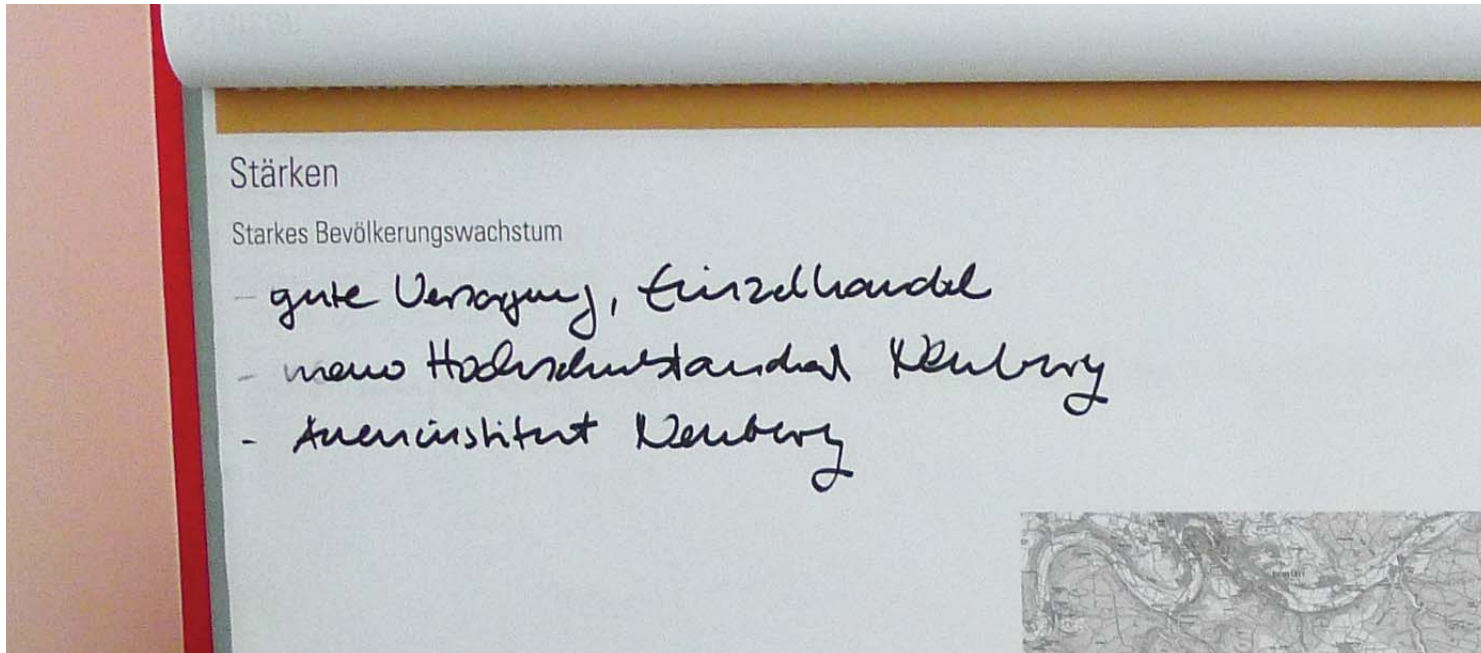 Stärken
Starkes Bevölkerungswachstum
- gute Versorgung, Einzelhandel
- Hochschulstandort Neuburg
- Aueninstitut Neuburg